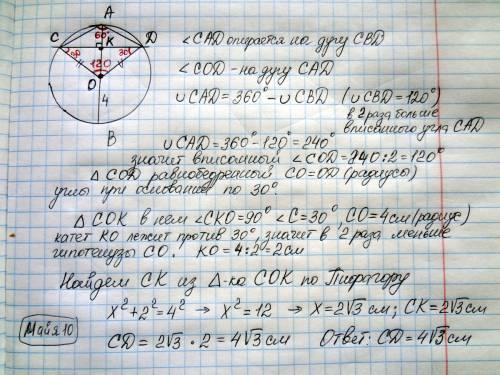 A
60°
C K D
30° 30°
120
O
4
B
∠CAD опирается на дугу CBD
∠COD - на дугу CAD
∪CAD = 360° - ∪CBD (∪CBD = 120°)
в 2 раза больше
вписанного угла CAD
∪CAD = 360° - 120° = 240°
значит вписанный ∠COD = 240 : 2 = 120°
△ COD равнобедренный CO = OD (радиусы)
углы при основание по 30°
△ COK в нем ∠CKO = 90° ∠C = 30°, CO = 4см (радиус)
катет KO лежит против 30°, значит в 2 раза меньше
гипотенузы CO. KO = 4 : 2 = 2см
Найдем CK из △-ка COK по Пифагору
x² + 2² = 4² → x² = 12 → x = 2√3 см; CK = 2√3 см
CD = 2√3 · 2 = 4√3 см Ответ: CD = 4√3 см
Майя 10